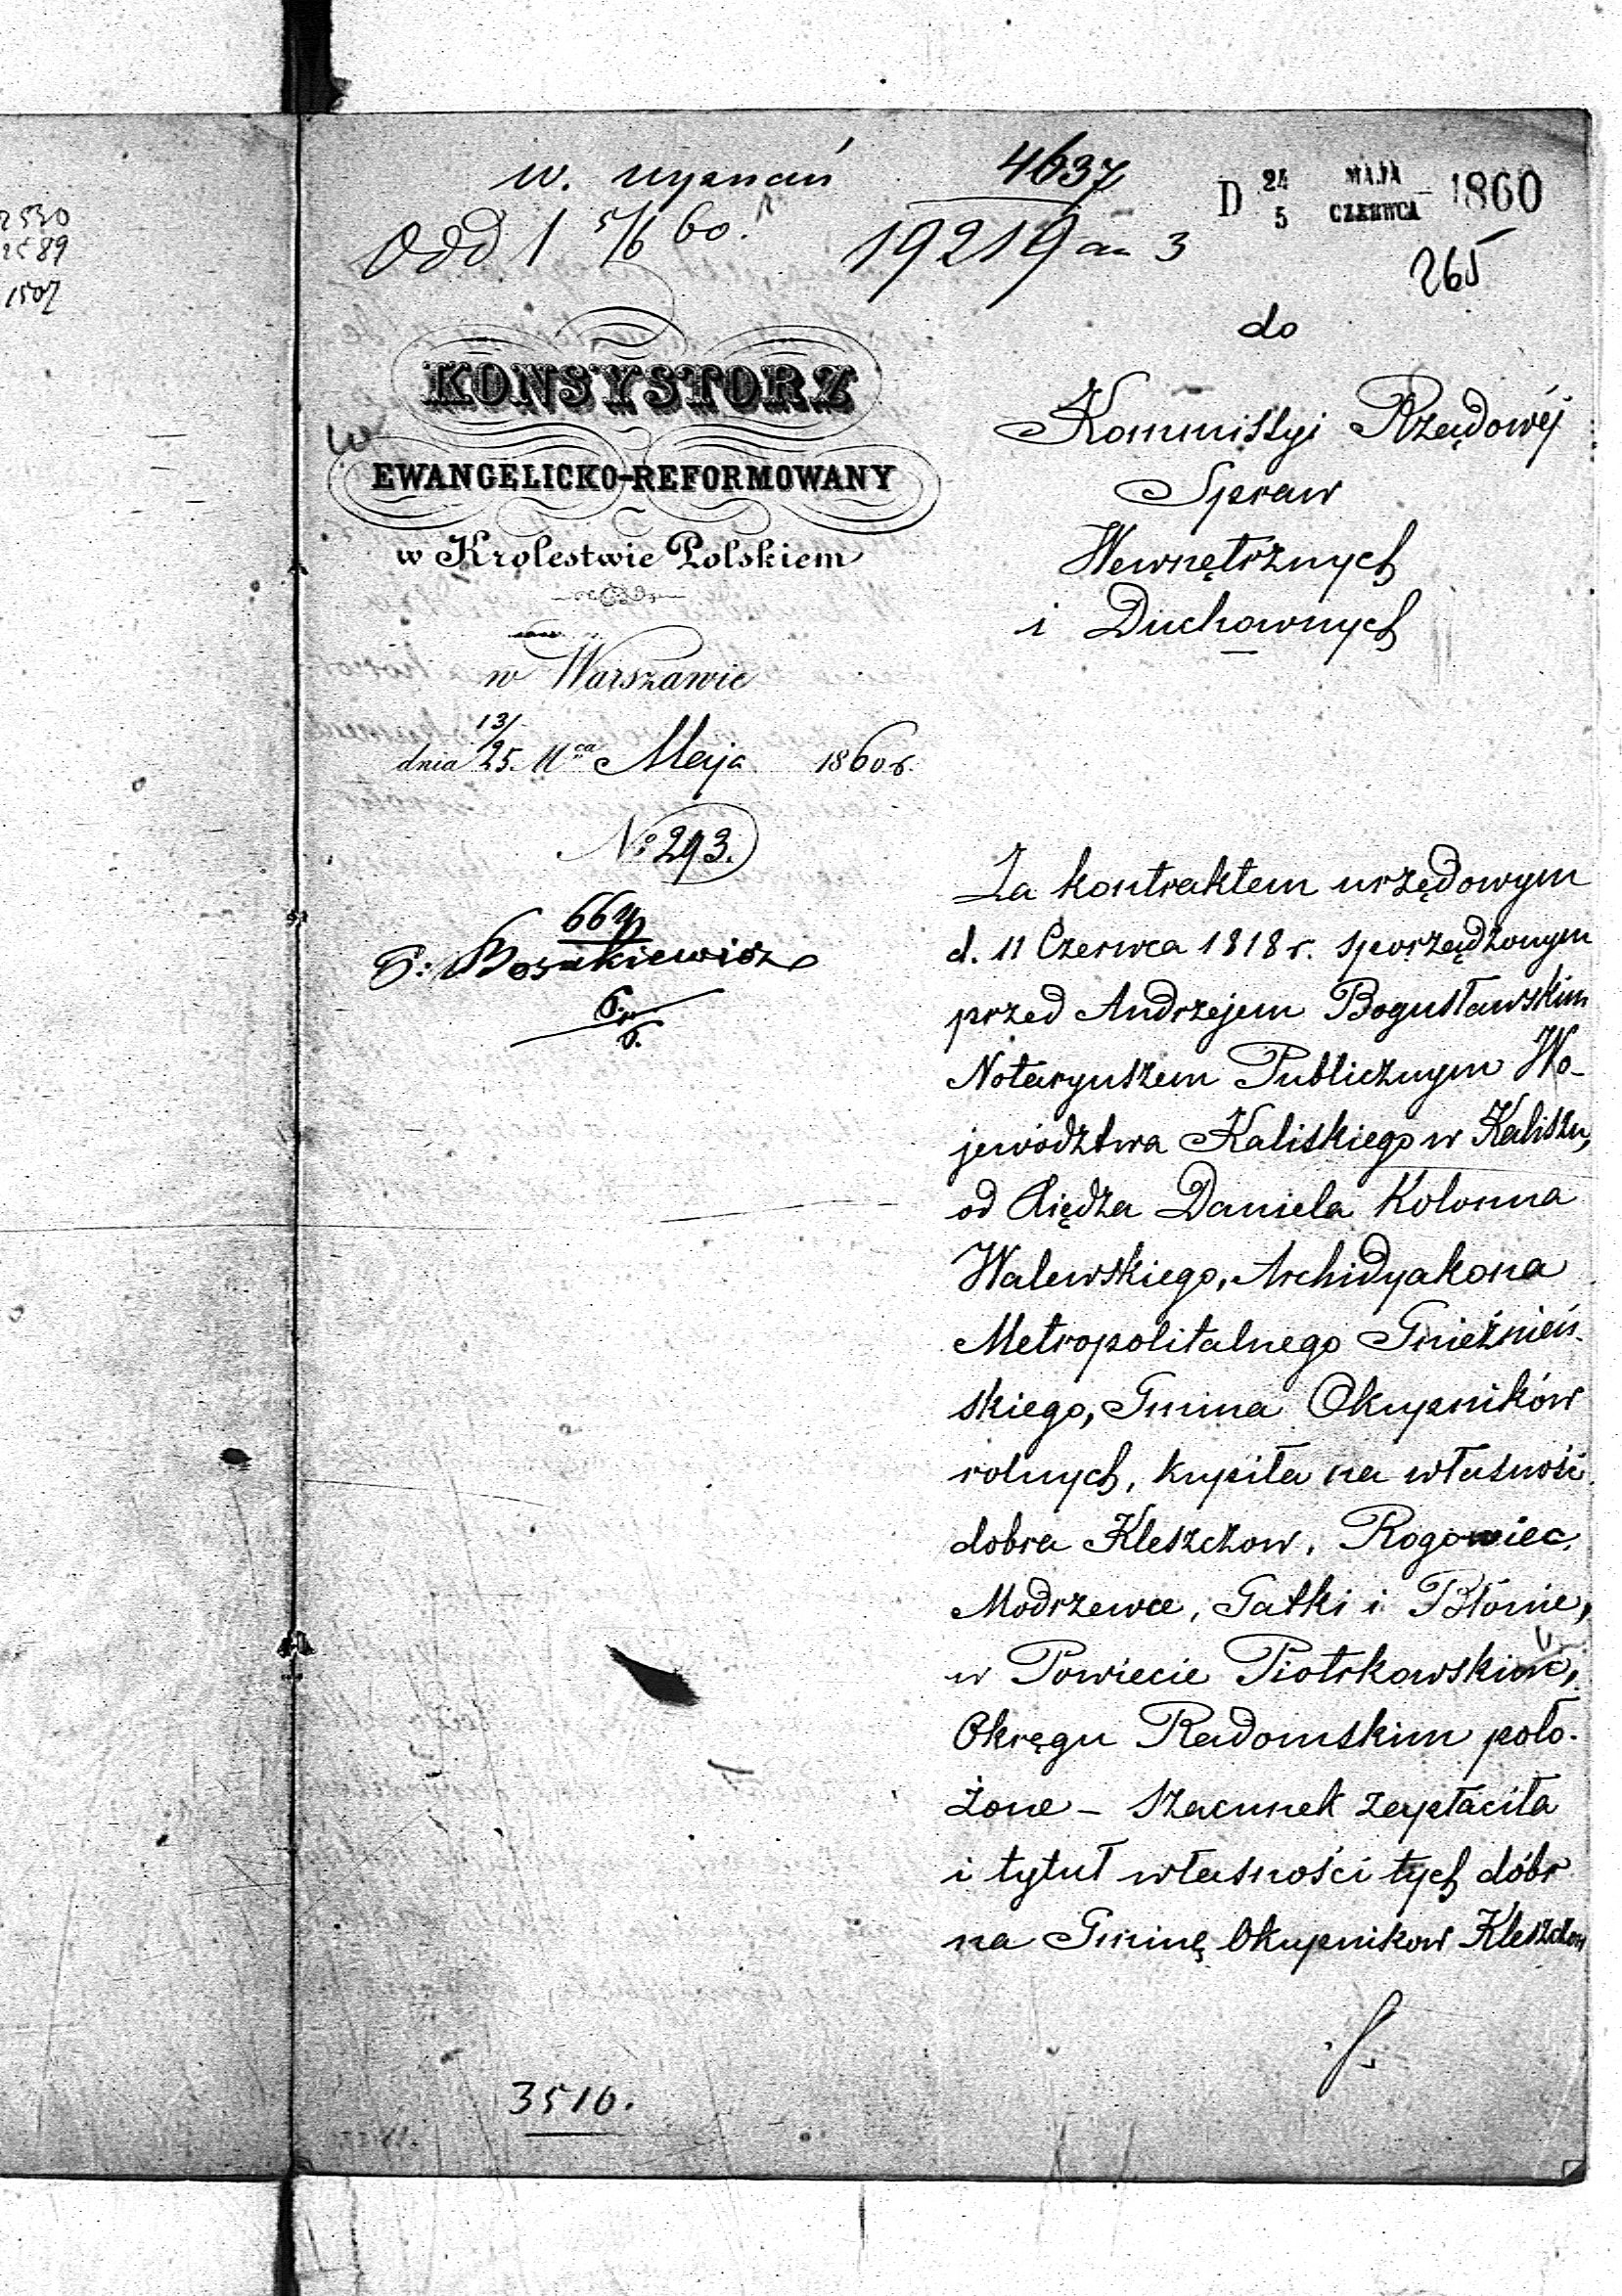 2530
2589
1507
w. wyznań
Odd 1 5/6 60.
4637
19219 an 3
D 24/5 MAJA/CZERWCA 1860
265
KONSYSTORZ
EWANGELICKO-REFORMOWANY
w Krolestwie Polskiem
w Warszawie
dnia 13/25 Mca Maja 1860 r.
No 293.
664
6/6.
do
Kommissyi Rządowéj
Spraw
Wewnętrznych
i Duchownych
Za kontraktem urzędowym
d. 11 Czerwca 1818 r. sporządzonym
przed Andrzejem Bogusławskim
Notaryuszem Publicznym Wo-
jewództwa Kaliskiego w Kaliszu,
od Xiędza Daniela Kolonna
Walewskiego, Archidyakona
Metropolitalnego Gnieźnień-
skiego, Gmina Okupników
rolnych, kupiła na własność
dobra Kleszczow, Rogowiec,
Modrzewce, Gatki i Błonie,
w Powiecie Piotrkowskim,
Okręgu Radomskim poło-
żone – szacunek zapłaciła
i tytuł własności tych dóbr
na Gminę Okupnikow Kleszczow
3510.